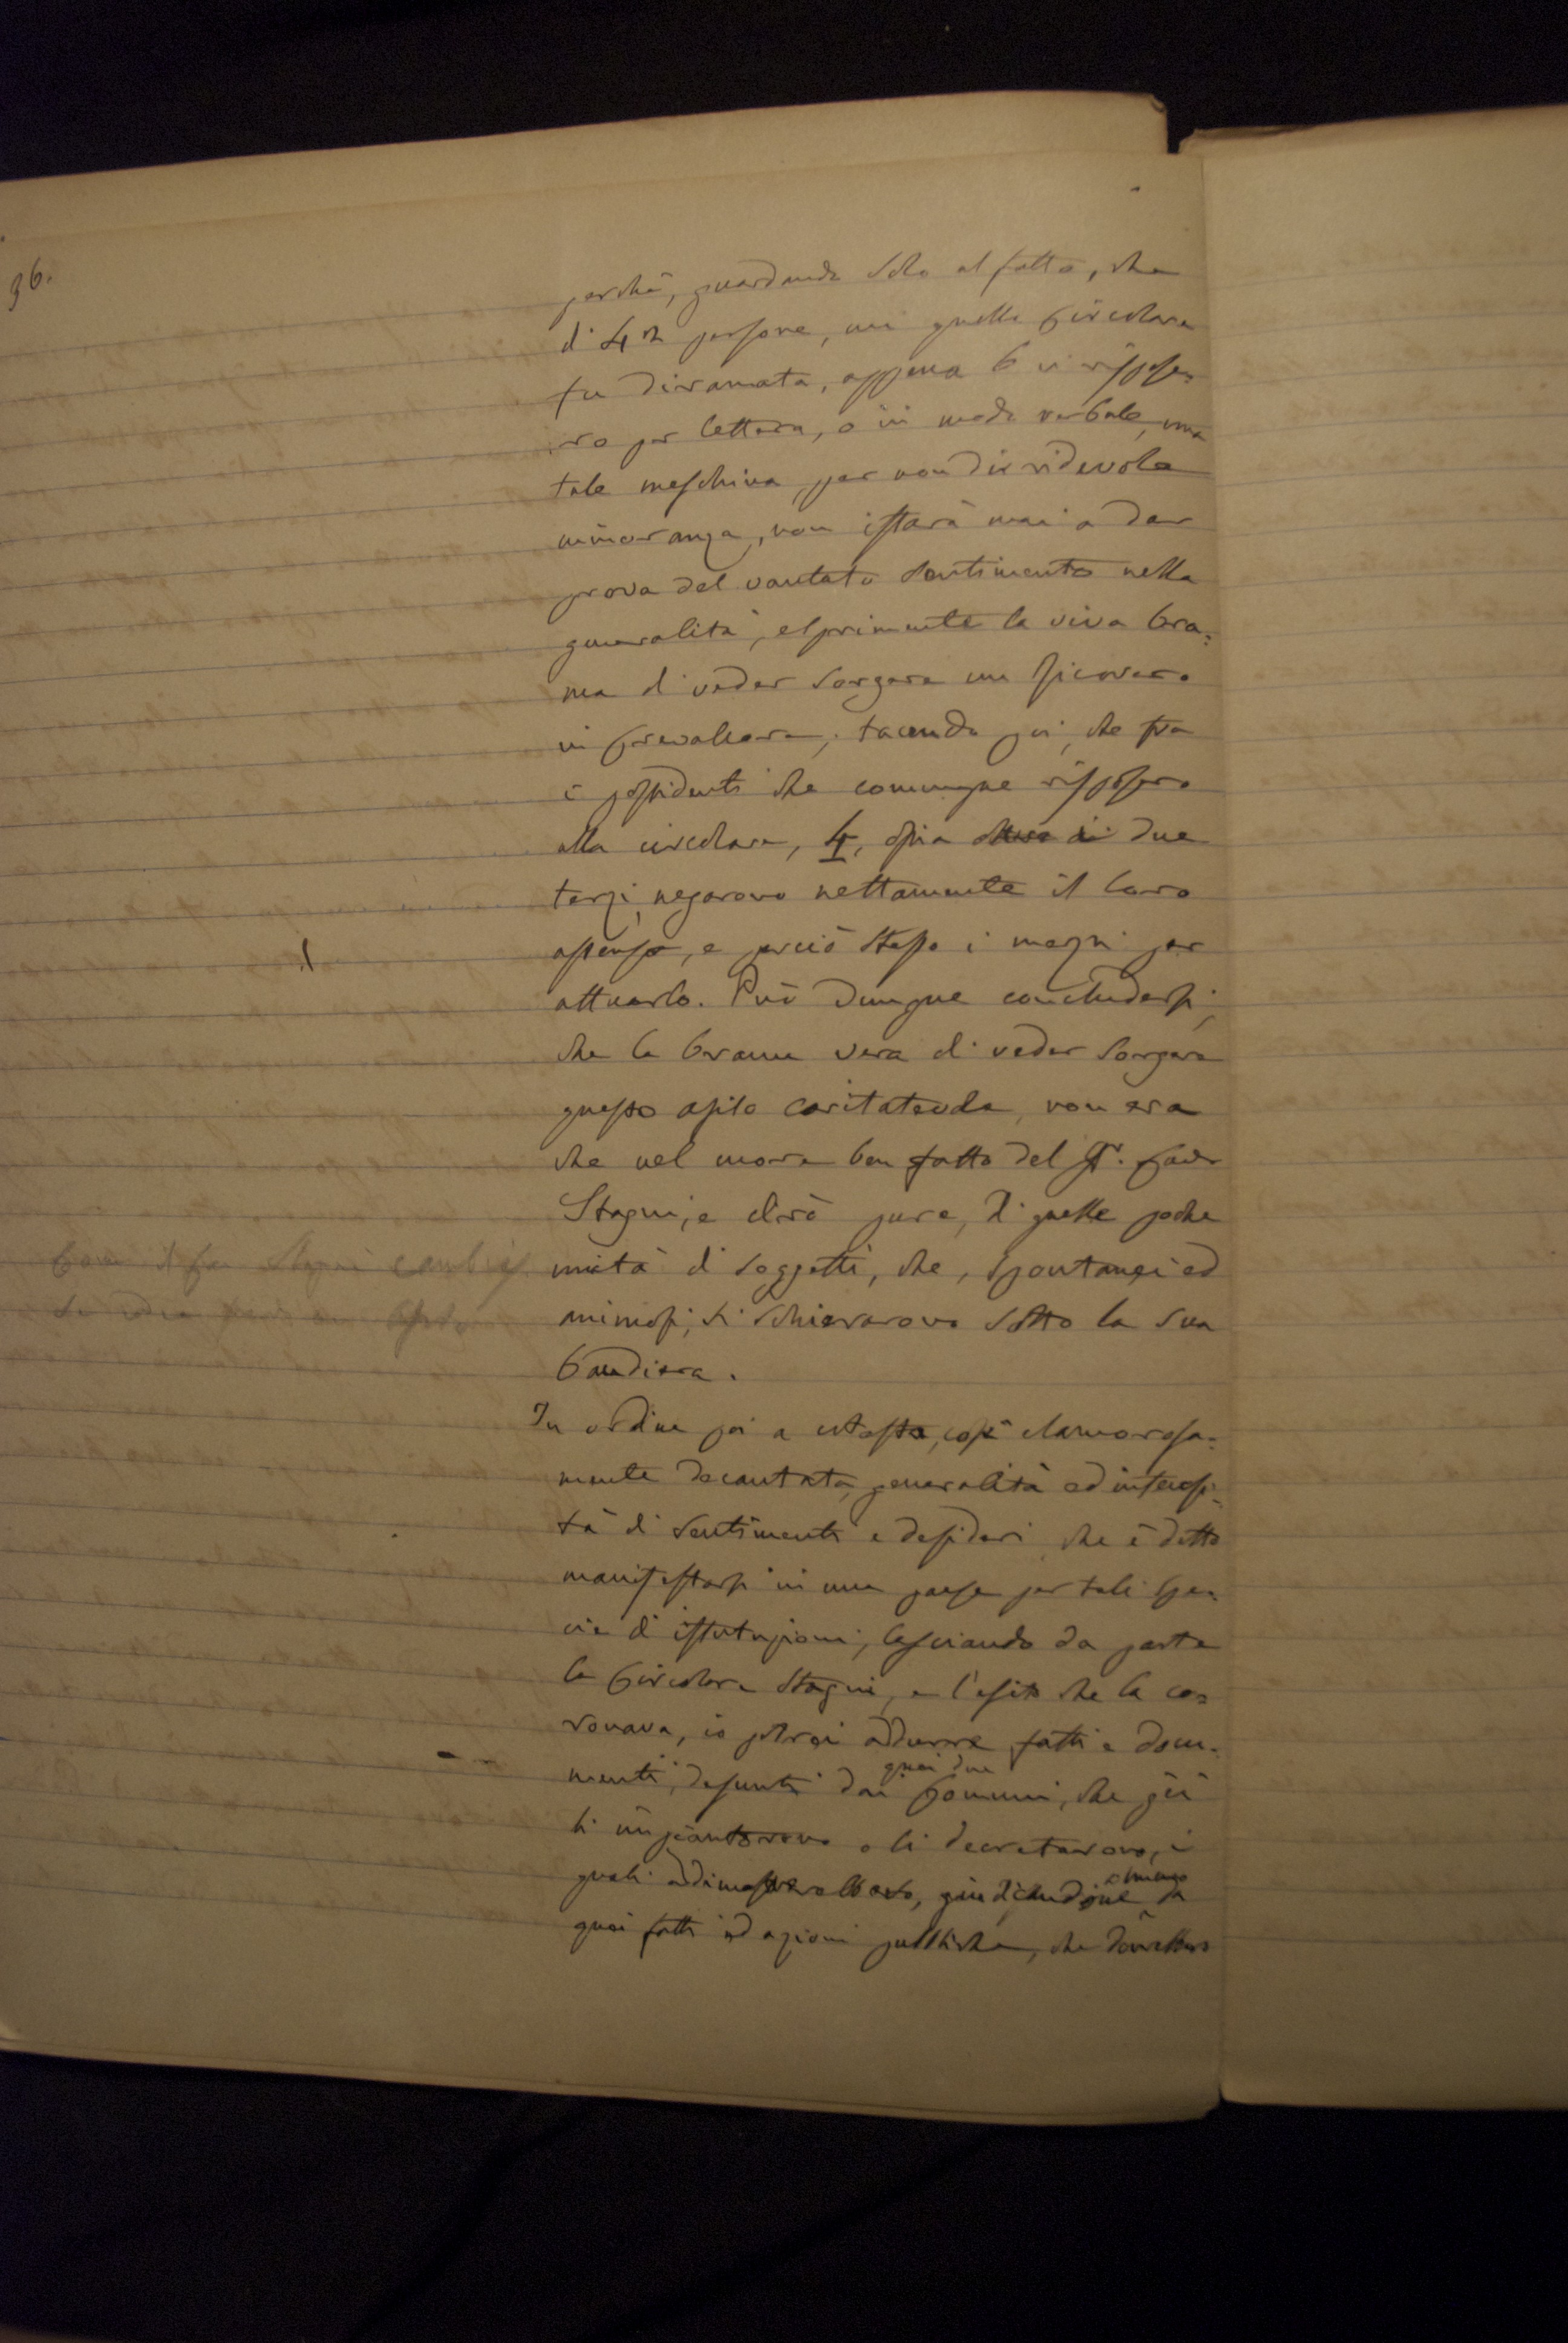 36.
perchè, guardando solo al fatto, che
di 42 persone, cui quella Circolare
fu diramata, appena 6 vi rispose=
ro per lettera, o in modo verbale, una
tale meschina, per non dir ridevole
minoranza, non istarà mai a dar
prova del vantato sentimento nella
generalità, esprimente la viva bra=
ma di veder sorgere un Ricovero
in Crevalcore; tacendo poi, che fra
i possidenti che comunque risposero
alla circolare, 4, ossia due
terzi, negarono nettamente il loro
assenso, e perciò stesso i mezzi per
attuarlo. Può dunque concludersi,
che la brama vera di veder sorgere
questo asilo caritatevole, non era
che nel cuore ben fatto del Sr. Cavr
Stagni, e dirò pure, di quelle poche
unità di soggetti, che, spontanei ed
animosi, si schierarono sotto la sua
bandiera.
Come il fu Stagni
In ordine poi a cotesta, così clamorosa=
mente decantata, generalità ed intensi=
tà di sentimenti e desideri che è detto
manifestarsi in un paese per tali spe=
cie d'istituzioni; lasciando da parte
la Circolare Stagni, e l'esito che la co=
ronava, io potrei addurre fatti e docu=
menti, desunti dai Comuni, che già
quei due
li impiantarono o li decretarono, i
quali addimostrerebbero, giudicandone da
almeno
quei fatti ed azioni pubbliche, che dovrebbero